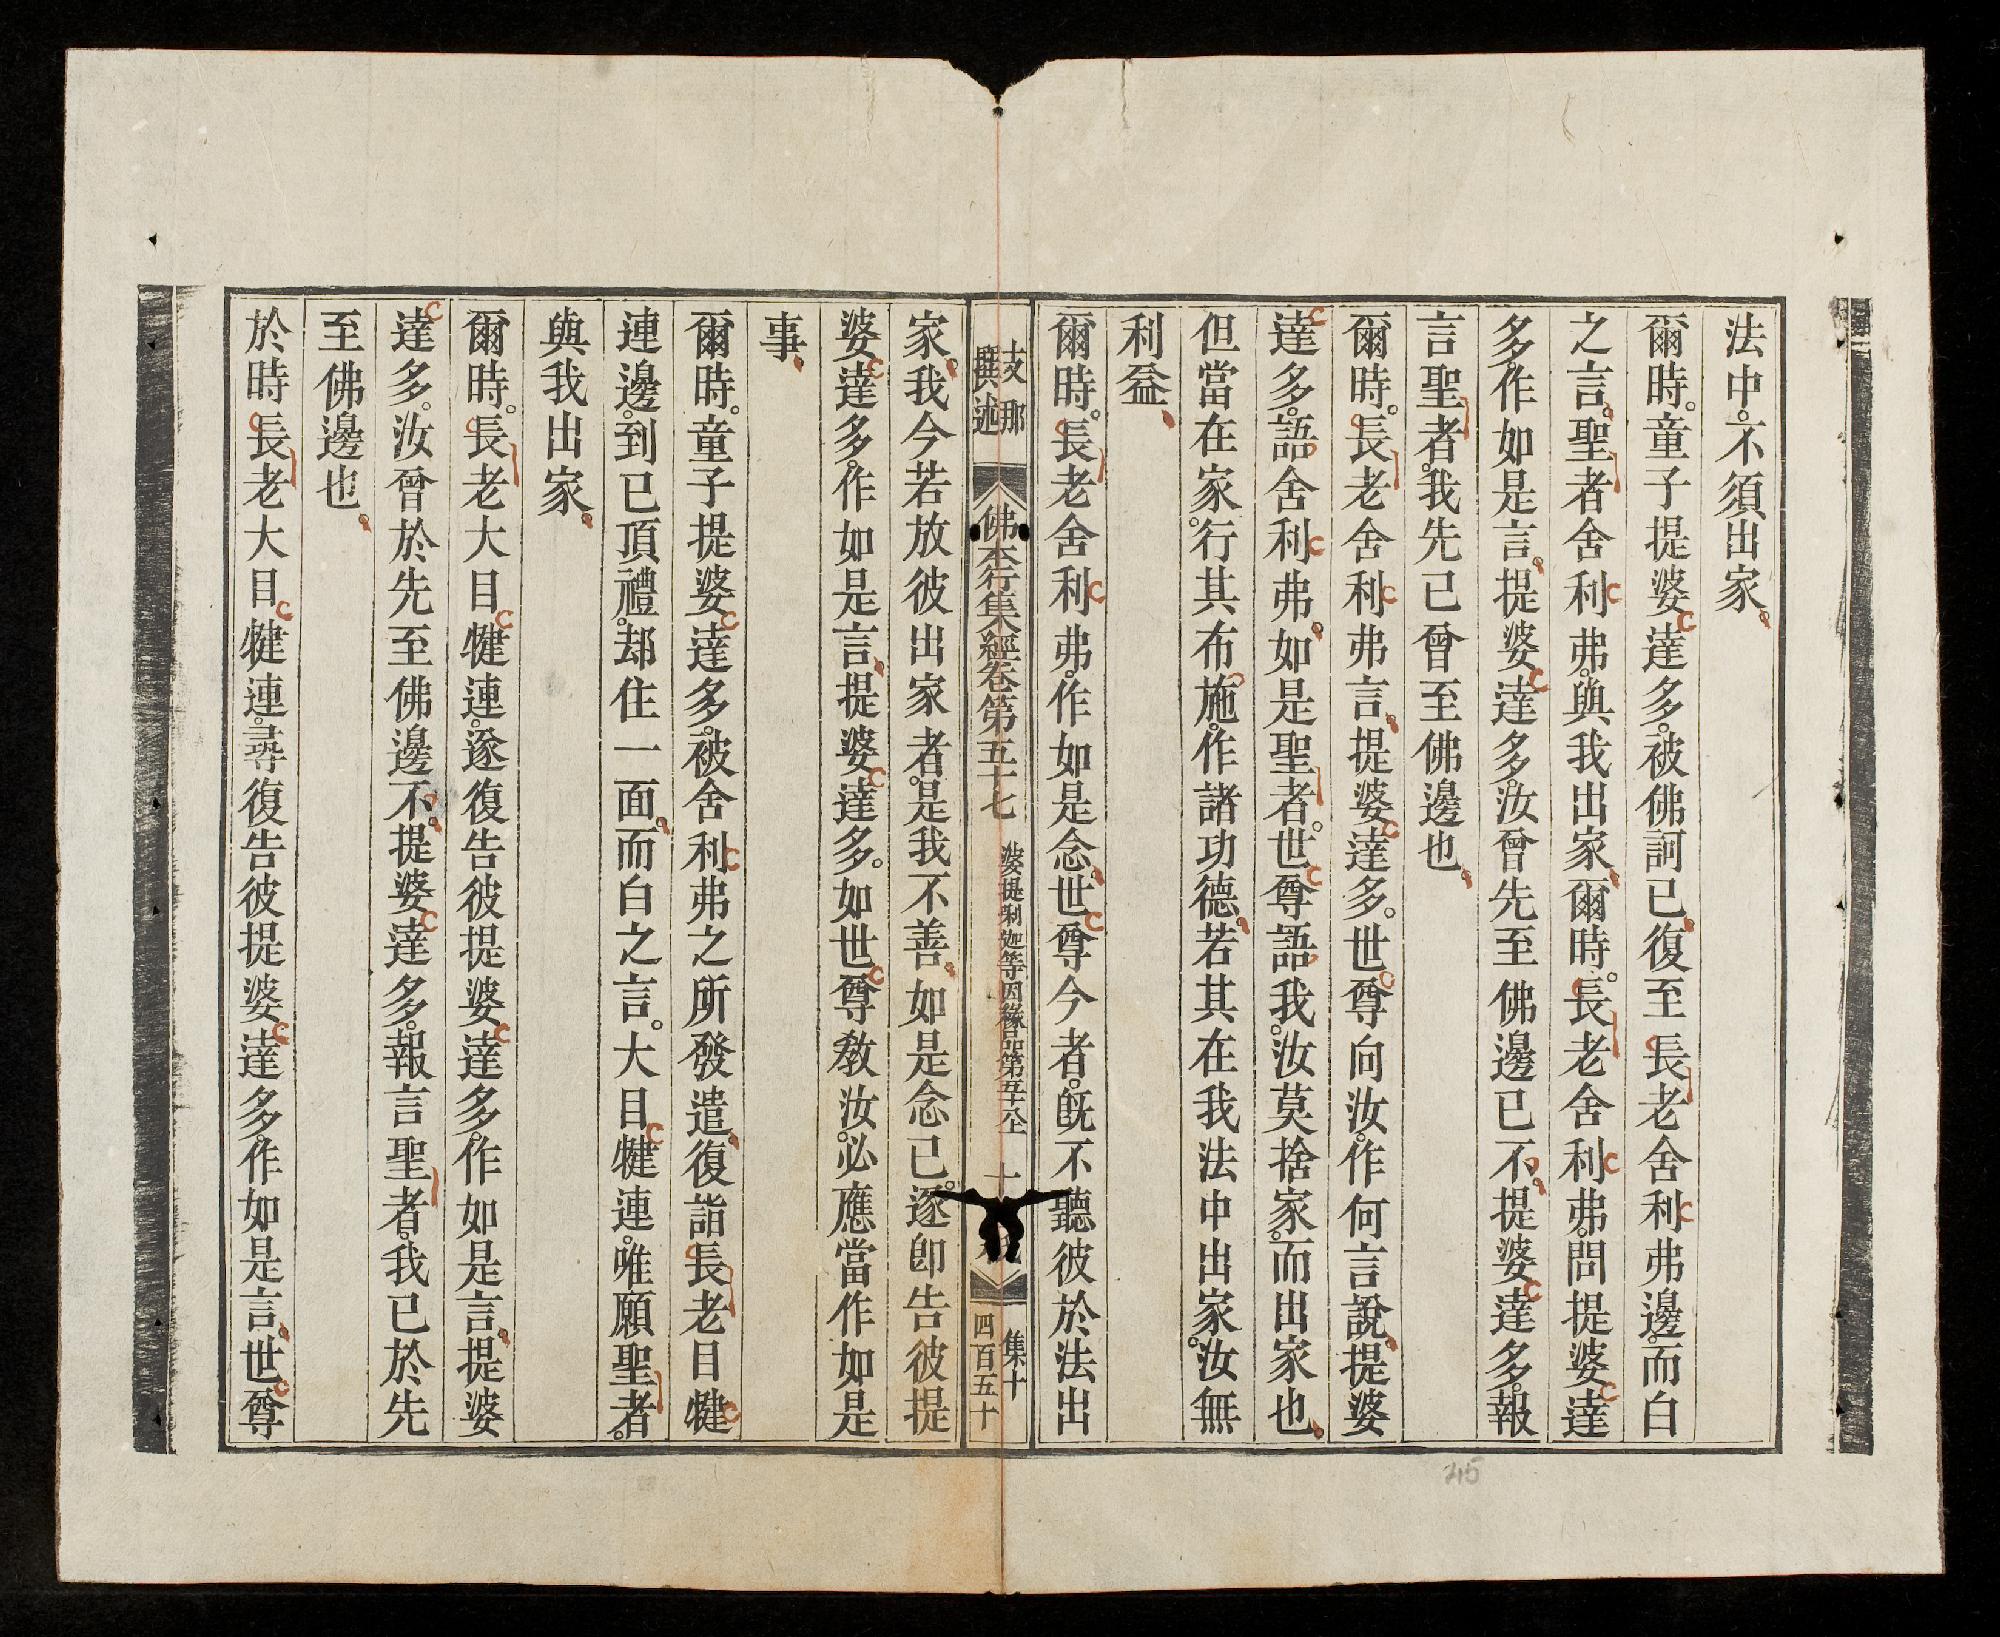 法中。不須出家。
爾時。童子提婆達多。被佛訶已。復至長老舍利弗邊。而白
之言。聖者舍利弗。與我出家。爾時。長老舍利弗。問提婆達
多。作如是言。提婆達多。汝曾先至佛邊已不。提婆達多。報
言聖者。我先已曾至佛邊也。
爾時。長老舍利弗言。提婆達多。世尊向汝。作何言說。提婆
達多。語舍利弗。如是聖者。世尊語我。汝莫捨家。而出家也。
但當在家。行其布施。作諸功德。若其在我法中出家。汝無
利益。
爾時。長老舍利弗。作如是念。世尊今者。旣不聽彼於法出
支那
撰述
佛本行集經卷第五十七
婆提唎迦等因緣品第五十八
十
集十
四百五十
家。我今若放彼出家者。是我不善。如是念已。遂卽告彼提
婆達多。作如是言。提婆達多。如世尊教汝。必應當作如是
事。
爾時。童子提婆達多。被舍利弗之所發遣。復詣長老目犍
連邊。到已頂禮。却住一面。而白之言。大目犍連。唯願聖者。
與我出家。
爾時。長老大目犍連。遂復告彼提婆達多。作如是言。提婆
達多。汝曾於先至佛邊不。提婆達多。報言聖者。我已於先
至佛邊也。
於時。長老大目犍連。尋復告彼提婆達多。作如是言。世尊
45